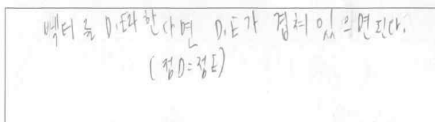 벡터를 D,E라 한다면 D,E가 겹쳐 있으면 된다.
(점D=점E)